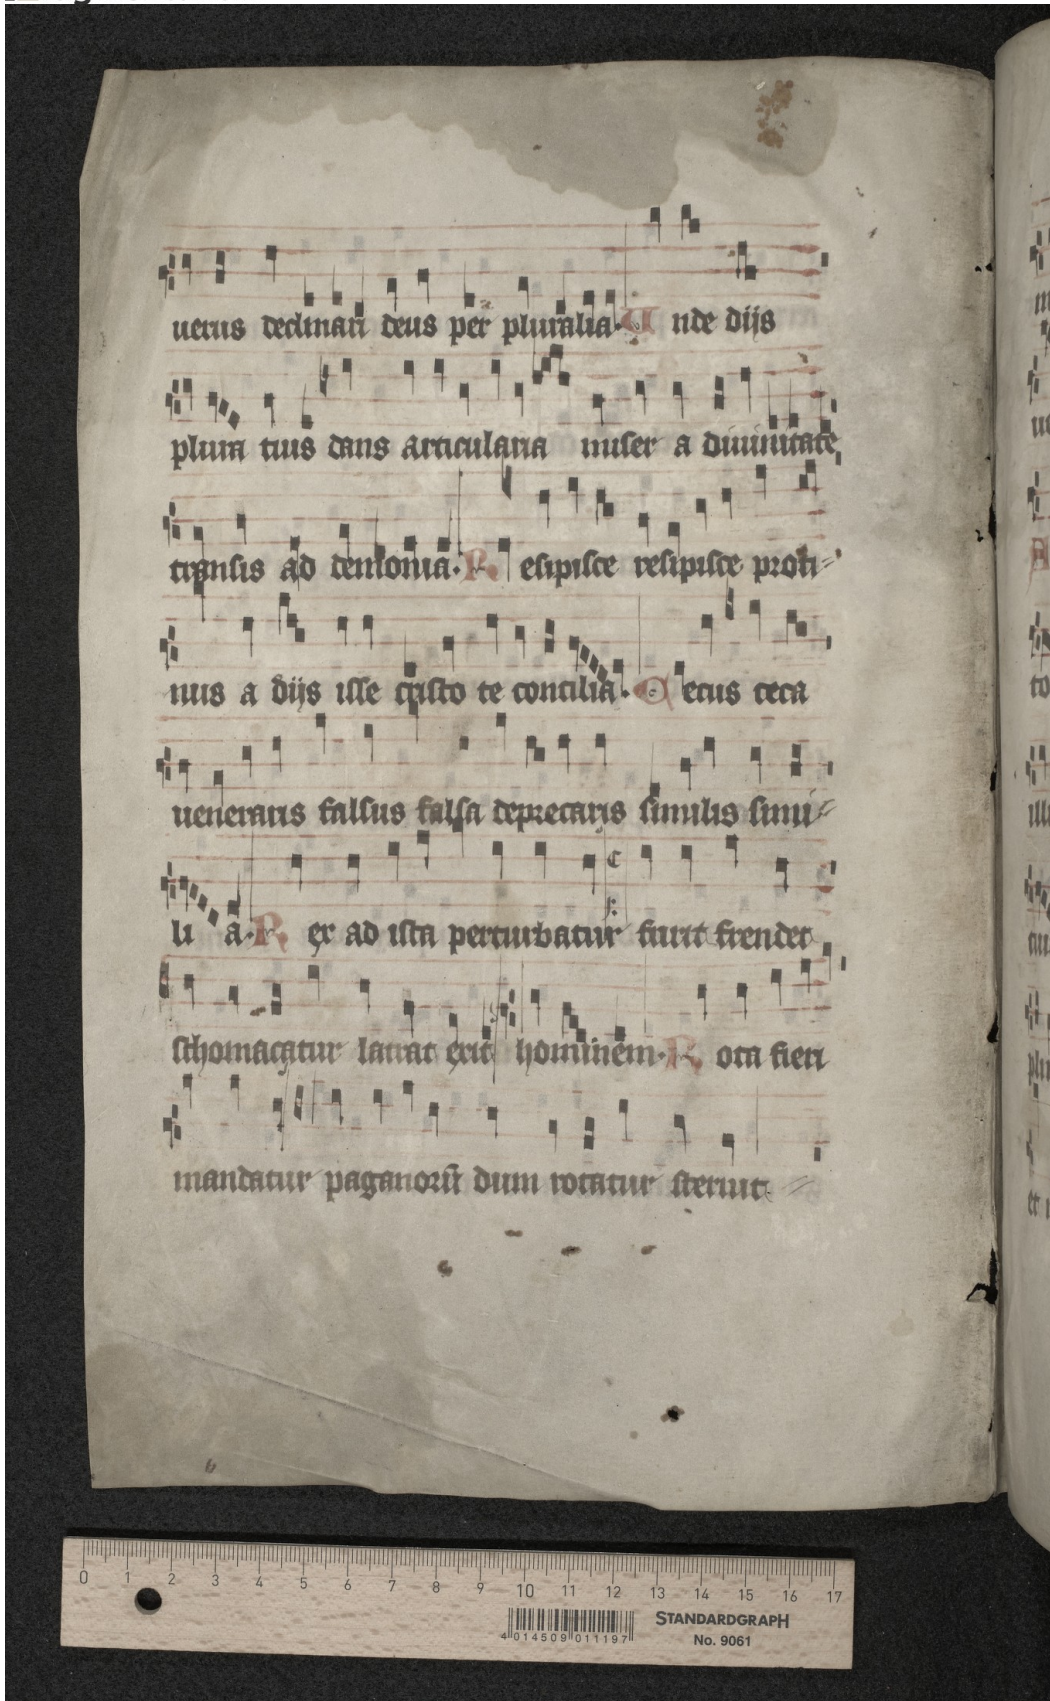 uerus declinari deus per pluralia. Unde dijs
plura tius dans articularia miser a diuinitate
transis ad demonia. Resipisce resipisce proti-
nus a dijs isse cristo te concilia. Cecus ceca
ueneraris falsus falsa deprecaris similis simi-
li a. Rex ad ista perturbatur furit frendet
sthomacatur latrat erit hominem. Rota fieri
mandatur paganorū dum rotatur steruit
0 1 2 3 4 5 6 7 8 9 10 11 12 13 14 15 16 17
STANDARDGRAPH
No. 9061
4 014509 011197